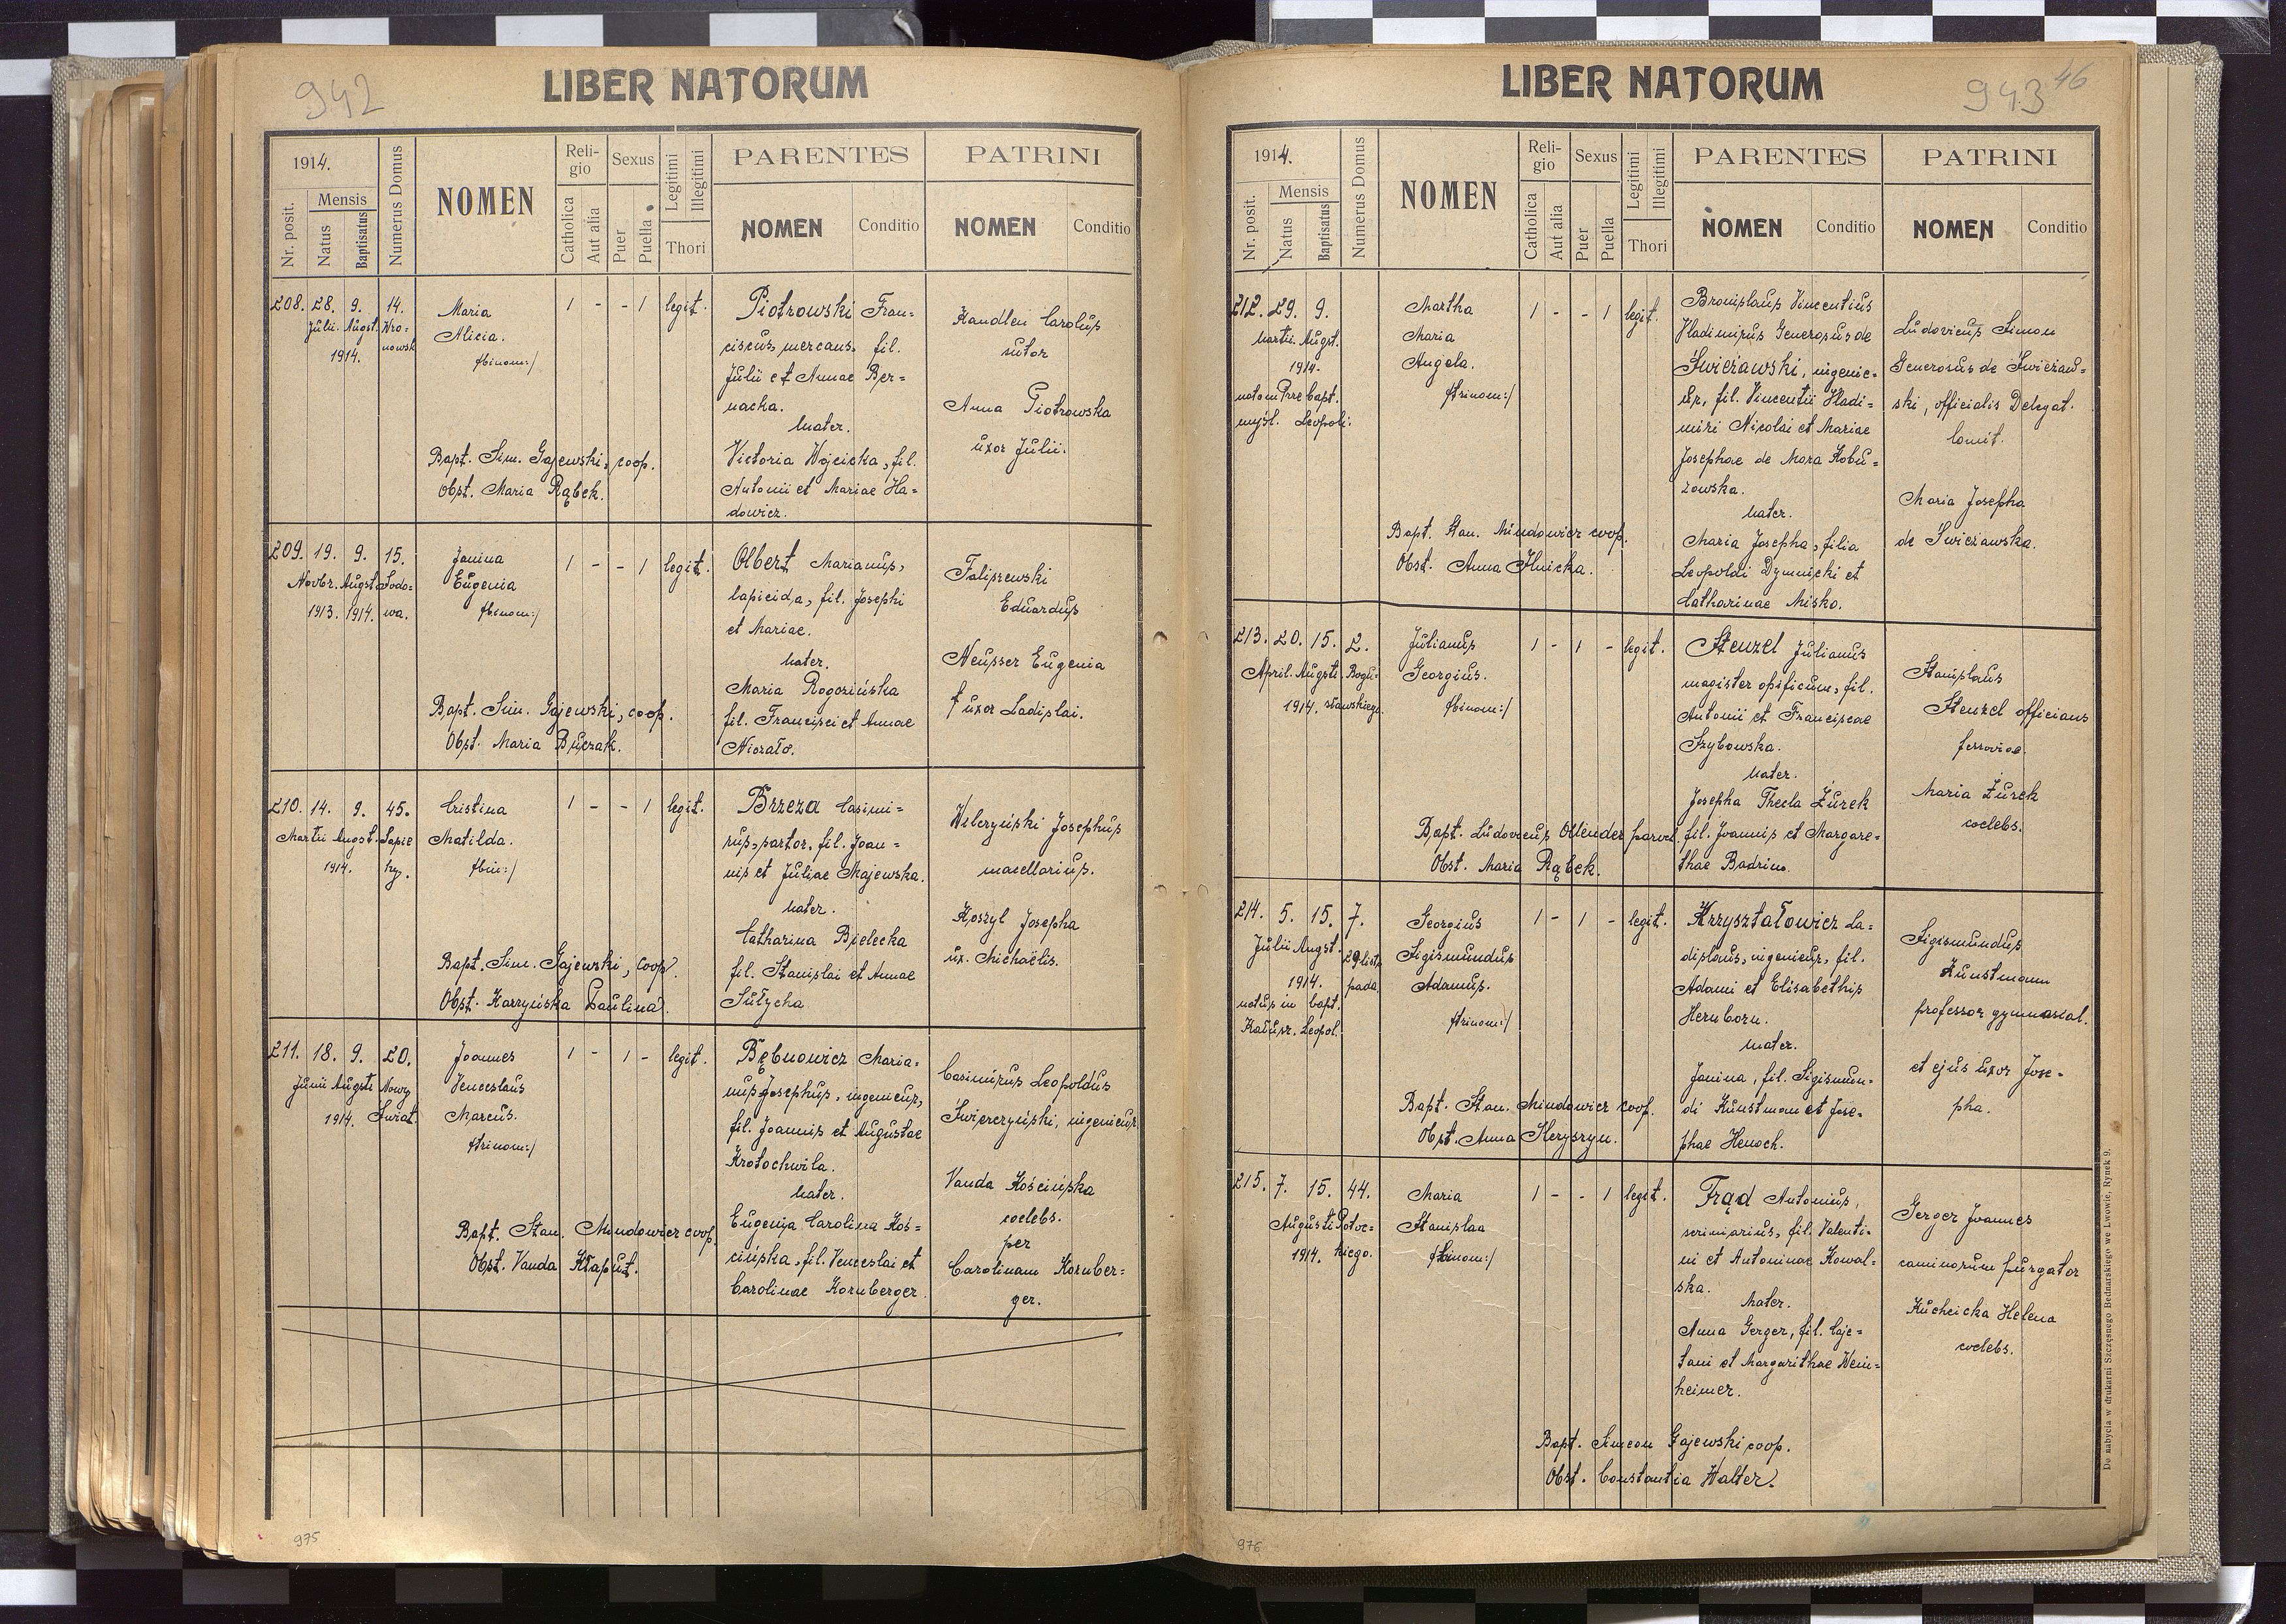 942
LIBER NATORUM
1914.
Mensis
Nr. posit.
Natus
Baptisatus
Numerus Domus
NOMEN
Religio
Catholica
Aut alia
Sexus
Puer
Puella
Legitimi
Illegitimi
Thori
PARENTES
NOMEN
Conditio
PATRINI
NOMEN
Conditio
208. 28. 9. 14.
Julii. Augst. Wro=
nowsk
1914.
Maria
Alicia.
/:binom:/
1 - - 1 legit.
Piotrowski Fran=
ciscus, mercans, fil.
Julii et Annae Ber=
nacka.
Mater.
Victoria Wójcicka, fil.
Antonii et Mariae Ha=
dowicz.
Kandlen Carolus
sutor
Anna Piotrowska
uxor Julii.
Bapt. Sim. Gajewski, coop.
Obst. Maria Rąbek.
209. 19. 9. 15.
Novbr. Augst. Sodo=
1913. 1914. wa.
Janina
Eugenia
/:binom:/
1 - - 1 legit.
Olbert Marianus,
lapicida, fil. Josephi
et Mariae.
Mater.
Maria Rogozińska
fil. Francisci et Annae
Niezało.
Faliszewski
Eduardus
Neusser Eugenia
uxor Ladislai.
Bapt. Sim. Gajewski, coop.
Obst. Maria Buczak.
210. 14. 9. 45.
Martii Augst. Sapie
1914. hy.
Cristina
Matilda.
/:bin:/
1 - - 1 legit.
Brzeza Casimi=
rus, portor, fil. Joan=
nis et Juliae Majewska.
Mater.
Catharina Bielecka
fil. Stanislai et Annae
Sułycha
Welczyński Josephus
macellarius.
Koszyl Josepha
ux. Michaëlis.
Bapt. Sim. Gajewski, Coop.
Obst. Karzyńska Paulina.
211. 18. 9. 20.
Junii Augsti Nowy
1914. Świat.
Joannes
Venceslaus
Marcus.
/:trinom:/
1 - 1 - legit.
Bębnowicz Maria=
nus Josephus, ingenieur,
fil. Joannis et Augustae
Krotochwila.
Mater.
Eugenia Carolina Koś=
cińska, fil. Venceslai et
Carolinae Kornberger.
Casimirus Leopoldus
Świerczyński, ingenieur.
Vanda Kościńska
coelebs.
per
Carolinam Kornber=
ger.
Bapt. Stan. Mindowicz coop.
Obst. Vanda Kłapút.
975
943 46
LIBER NATORUM
1914.
Mensis
Nr. posit.
Natus
Baptisatus
Numerus Domus
NOMEN
Religio
Catholica
Aut alia
Sexus
Puer
Puella
Legitimi
Illegitimi
Thori
PARENTES
NOMEN
Conditio
PATRINI
NOMEN
Conditio
212. 29. 9.
Martii. Augst.
1914.
natam Prze bapt.
myśl. Leopoli.
Martha
Maria
Angela.
/:trinom:/
1 - - 1 legit.
Bronislaus Vincentius
Vladimirus Generosus de
Świeżawski, ingenie=
ur, fil. Vincentii Vladi=
miri Nicolai et Mariae
Josephae de Mora Kobu=
zowska.
Mater.
Maria Josepha, filia
Leopoldi Dymnicki et
Catharinae Misko.
Ludovicus Simon
Generosus de Świeżaw=
ski, officialis Delegat.
Comit.
Maria Josepha
de Świeżawska.
Bapt. Stan. Mindowicz coop.
Obst. Anna Ilnicka.
213. 20. 15. 2.
April. Augsti Bogu=
1914. sławskiego.
Julianus
Georgius.
/:binom:/
1 - 1 - legit.
Stenzel Julianus
magister opificum, fil.
Antonii et Franciscae
Szybowska.
Mater.
Josepha Thecla Żurek
fil. Joannis et Margare=
thae Badrino.
Stanislaus
Stenzel officians
ferroviae.
Maria Żurek
coelebs.
Bapt. Ludovicus Ollender paroch.
Obst. Maria Rąbek.
214. 5. 15. 7.
Julii Augst. 29 listo
1914. pada
natus in bapt.
Kałusz. Leopol.
Georgius
Sigismundus
Adamus.
/:trinom:/
1 - 1 - legit.
Krzyształowicz La=
dislaus, ingenieur, fil.
Adami et Elisabethis
Hernborn.
Mater.
Janina, fil. Sigismun=
di Kunstman et Jose=
phae Henoch.
Sigismundus
Kunstmann
professor gymnasial.
et ejus uxor Jose=
pha.
Bapt. Stan. Mindowicz coop.
Obst. Anna Heryszyn.
215. 7. 15. 44.
Augusti Potoc=
1914. kiego.
Maria
Stanislaa
/:binom:/
1 - - 1 legit.
Frąd Antonius,
scriniarius, fil. Valenti=
ni et Antoninae Kowal=
ska.
Mater.
Anna Gerger, fil. Caje=
tani et Margarithae Wein=
heimer.
Gerger Joannes
caminorum purgator
Kuchcicka Helena
coelebs.
Bapt. Simeon Gajewski coop.
Obst. Constantia Walter.
Do nabycia w drukarni Szczęsnego Bednarskiego we Lwowie, Rynek 9.
976